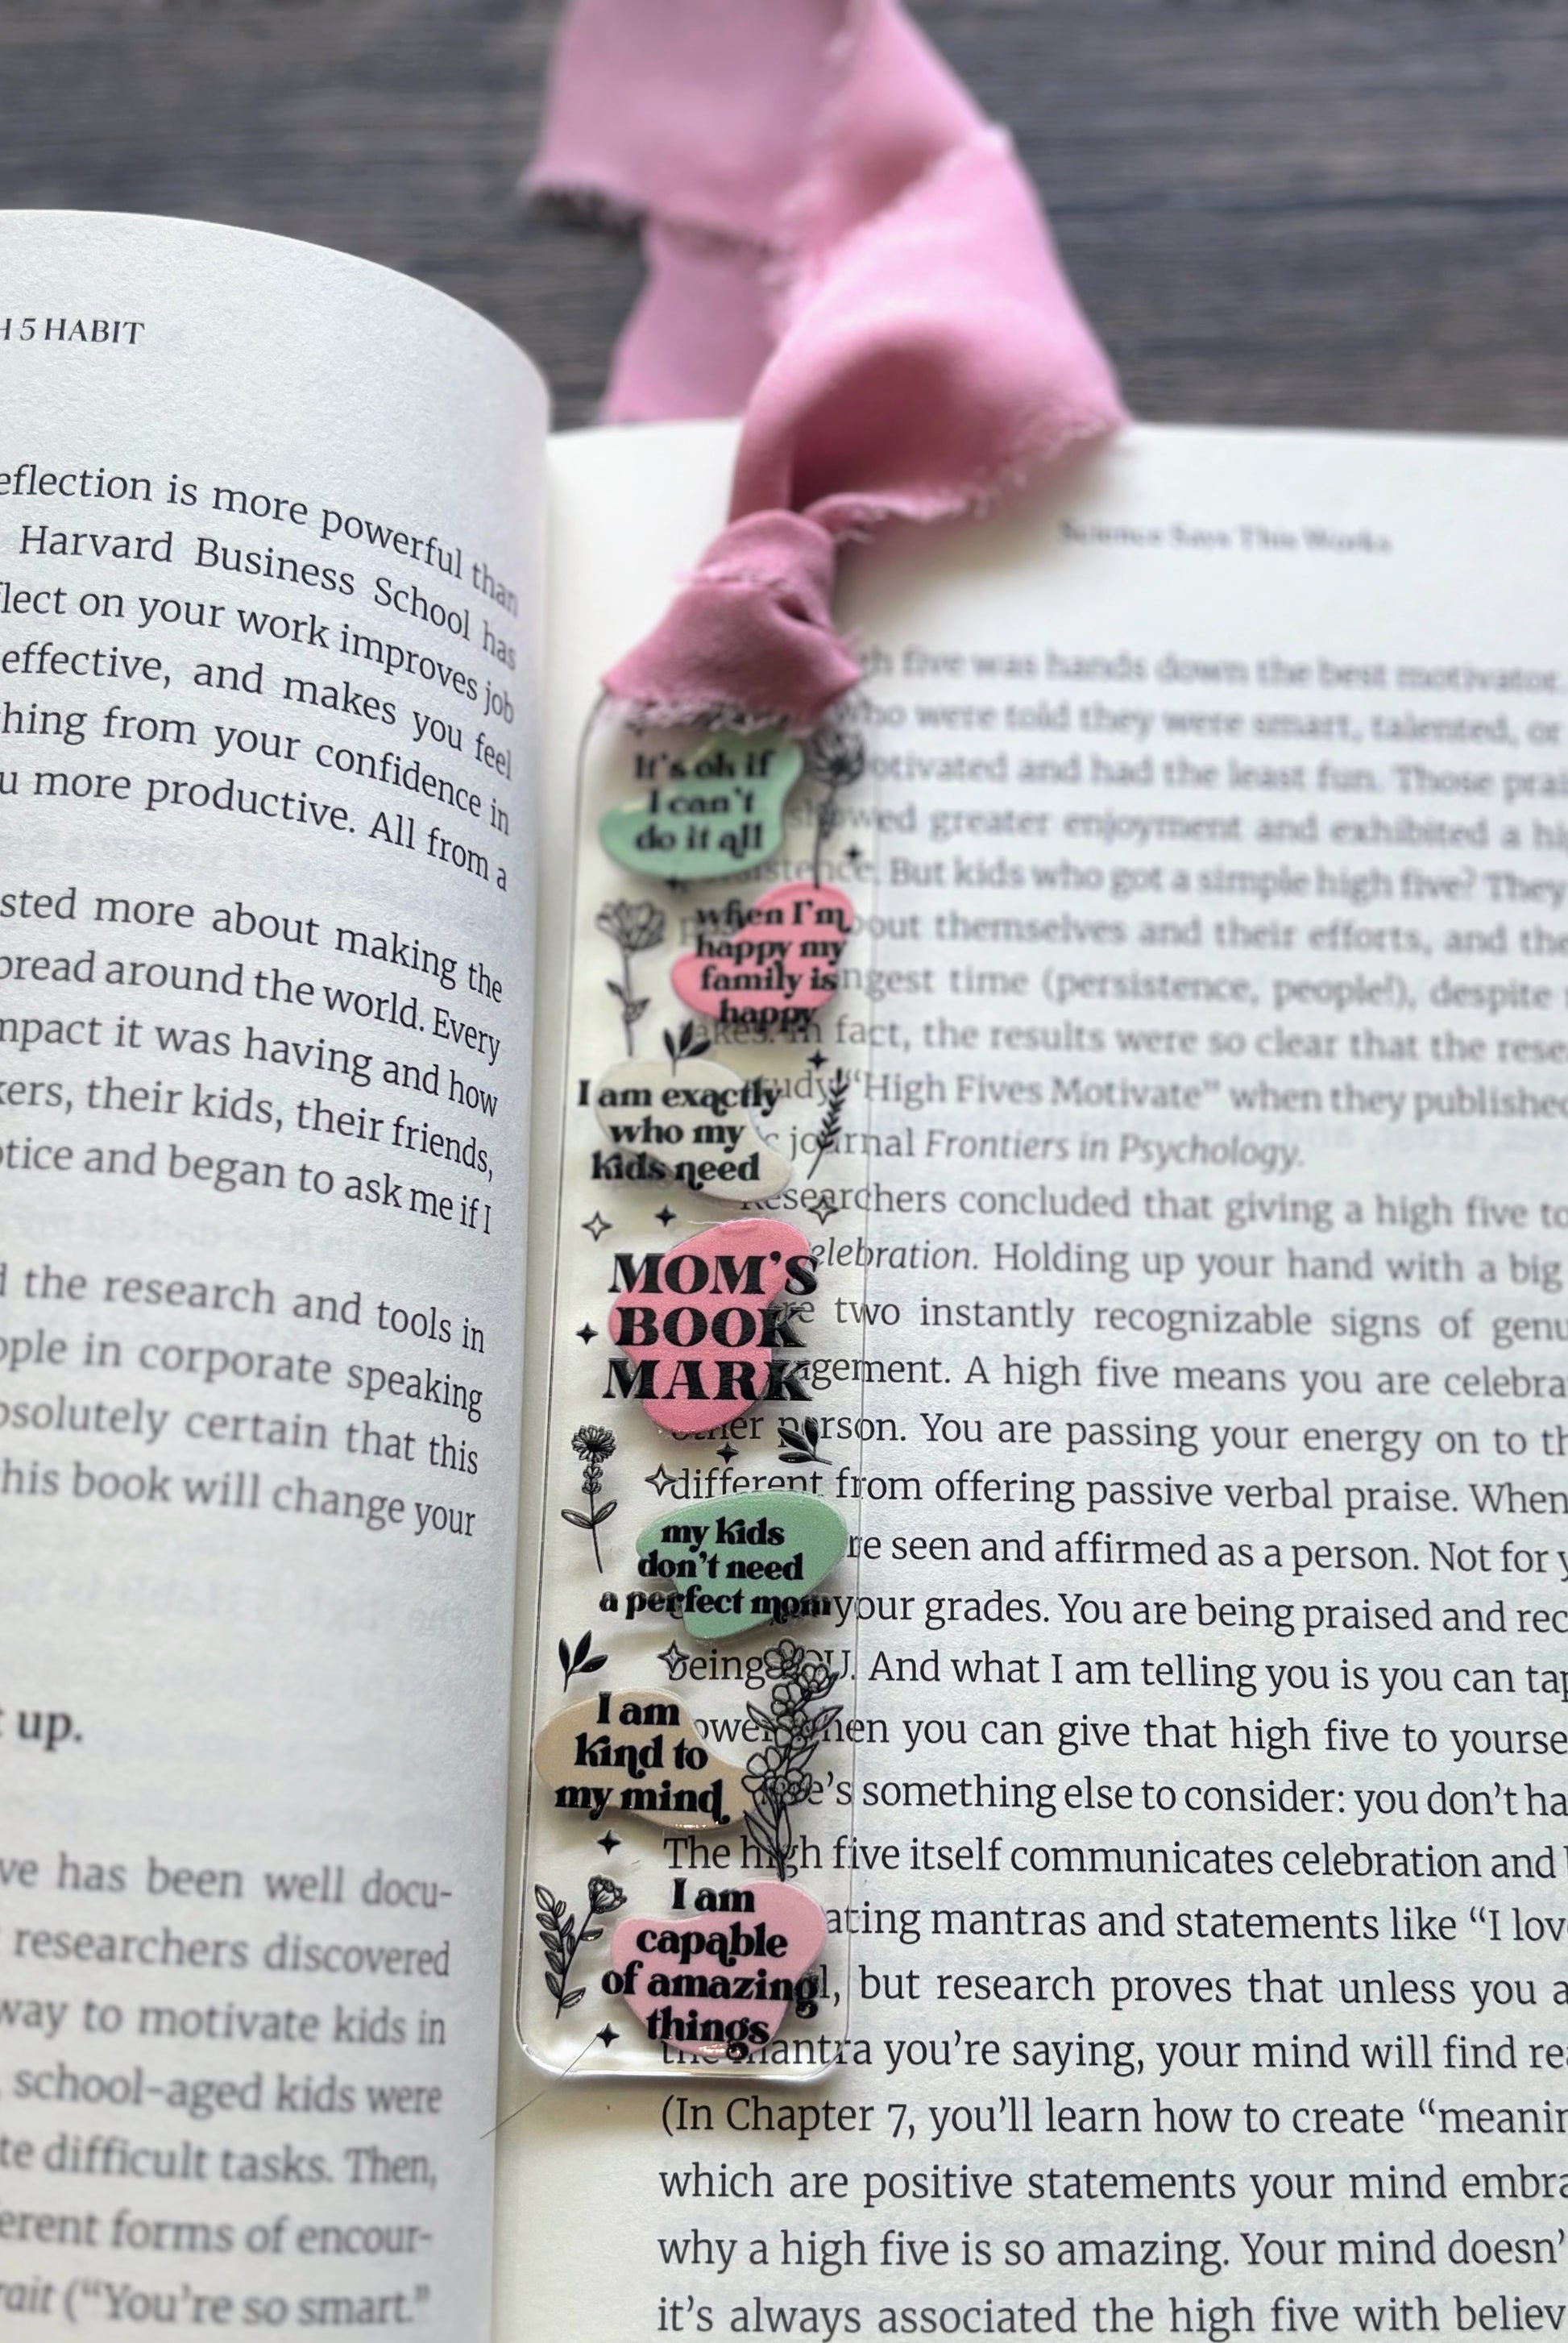 H 5 HABIT
eflection is more powerful than
Harvard Business School has
flect on your work improves job
effective, and makes you feel
hing from your confidence in
u more productive. All from a
sted more about making the
pread around the world. Every
mpact it was having and how
kers, their kids, their friends,
otice and began to ask me if I
d the research and tools in
ople in corporate speaking
bsolutely certain that this
his book will change your
t up.
ve has been well docu-
researchers discovered
way to motivate kids in
school-aged kids were
te difficult tasks. Then,
erent forms of encour-
rait (“You’re so smart.”
It's oh if
I can't
do it all
when I'm
happy my
family is
happy
I am exactly
who my
kids need
MOM'S
BOOK
MARK
my kids
don't need
a perfect mom
I am
kind to
my mind
I am
capable
of amazing
things
Science Says This Works
gh five was hands down the best motivator.
who were told they were smart, talented, or
otivated and had the least fun. Those prai
showed greater enjoyment and exhibited a hi
persistence. But kids who got a simple high five? They
about themselves and their efforts, and the
ngest time (persistence, people!), despite
akes. In fact, the results were so clear that the rese
tudy “High Fives Motivate” when they published
journal Frontiers in Psychology.
Researchers concluded that giving a high five to
celebration. Holding up your hand with a big
are two instantly recognizable signs of genu
agement. A high five means you are celebra
other person. You are passing your energy on to th
different from offering passive verbal praise. When
re seen and affirmed as a person. Not for y
your grades. You are being praised and rec
being YOU. And what I am telling you is you can tap
power when you can give that high five to yourse
e’s something else to consider: you don’t ha
The high five itself communicates celebration and
ating mantras and statements like “I lov
l, but research proves that unless you a
the mantra you’re saying, your mind will find rea
(In Chapter 7, you’ll learn how to create “meanin
which are positive statements your mind embra
why a high five is so amazing. Your mind doesn’
it’s always associated the high five with believ